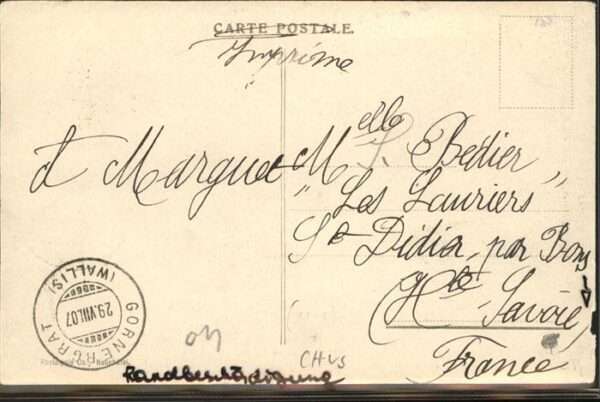 CARTE POSTALE.
Imprimé
A Marguet
Melle P. Bédier
"Les Lauriers"
St Didier, par Bons
Hte Savoie
France
GORNERGRAT
(WALLIS)
29.VIII.07
CHVS
Randbeschädigung